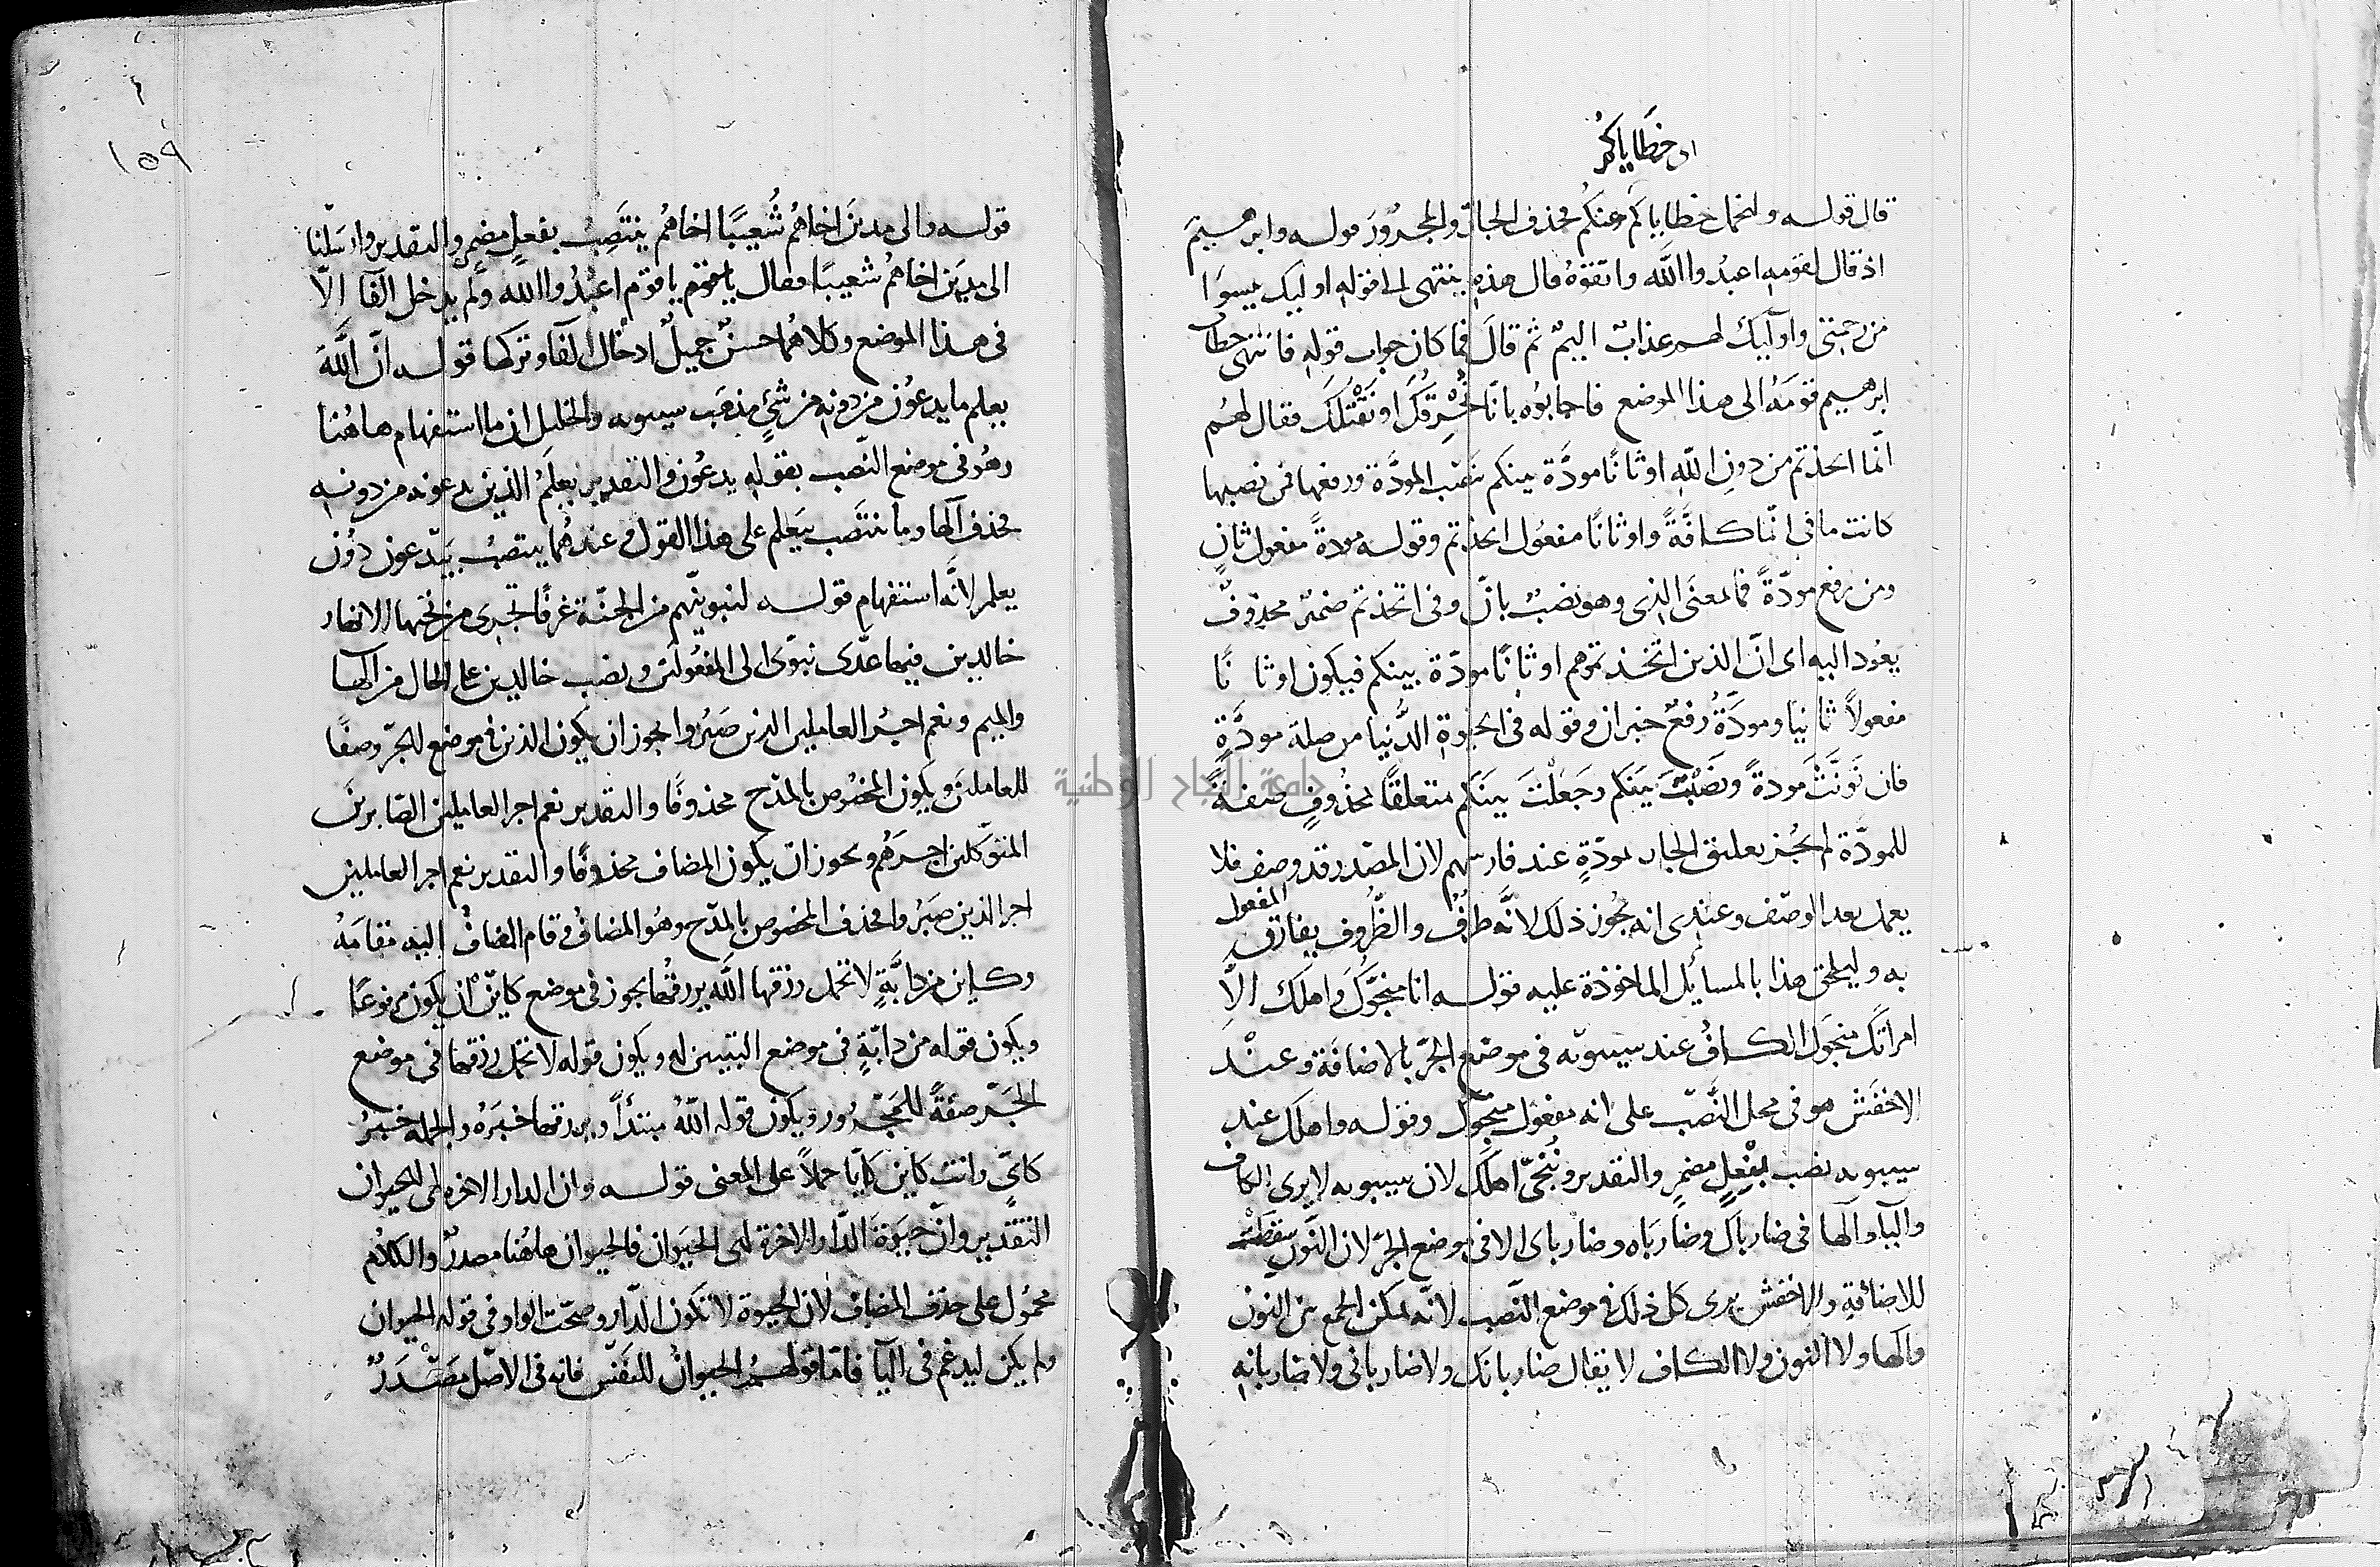 اى خطاياكم
قال قوله ولنحمل خطاياكم عنكم فحذف الجار والمجرور قوله وابرهيم
اذ قال لقومه اعبدوا الله واتقوه قال هذه ينتهى الى قوله اوليك يىسوا
من رحمتى واوليك لهم عذاب اليم ثم قال فما كان جواب قوله فانتهى خطاب
ابرهيم قومه الى هذا الموضع فاجابوه بانا نحرقك او نقتلك فقال لهم
انما اتخذتم من دون الله اوثانا مودة بينكم نصب المودة ورفعها فمن نصبها
كانت ما فى انما كافة واوثانا مفعول اتخذتم وقوله مودة مفعول ثان
ومن رفع مودة فما لمعنى الذى وهو نصب بان وفى اتخذتم ضمير محذوف
يعود اليه اى ان الذين اتخذتموهم اوثانا مودة بينكم فيكون اوثانا
مفعولا ثانيا ومودة رفع خبر ان وقوله فى الحيوة الدنيا من صلة مودة
فان نونت مودة ونصبت بينكم وجعلت بينكم متعلقا بمحذوف صفة
للمودة لم يجز تعليق الجار بمودة عند فارسهم لان المصدر قد وصف فلا
يعمل بعد الوصف وعندى انه يجوز ذلك لانه ظرف والظروف يفارق المفعول
به وليلحق هذا بالمسائل الماخوذة عليه قوله انا منجوك واهلك الا
امراتك منجوك الكاف عند سيبويه فى موضع الجر بالاضافة وعند
الاخفش هو فى محل النصب على انه مفعول منجوك وقوله واهلك عند
سيبويه نصب بفعل مضمر والتقدير وننجى اهلك لان سيبويه لا يرى الكاف
واليا والها فى ضارباك وضارباه وضارباى الا فى موضع الجر لان النون سقطت
للاضافة والاخفش يرى كل ذلك فى موضع النصب لانه لا يمكن الجمع بين النون
والها ولا النون ولا الكاف لا يقال ضاربانك ولا ضاربانى ولا ضاربانه
١٥٩
قوله والى مدين اخاهم شعيبا اخاهم ينتصب بفعل مضمر والتقدير وارسلنا
الى مدين اخاهم شعيبا فقال يا قوم اعبدوا الله ولم يدخل الفا الا
فى هذا الموضع وكلاهما حسن جميل ادخال الفا وتركها قوله ان الله
يعلم ما يدعون من دونه من شئ مذهب سيبويه والخليل ان ما استفهام هاهنا
وهو فى موضع النصب بقوله يدعون والتقدير يعلم الذين يدعونه من دونه
فحذف الها وما ينتصب بيعلم على هذا القول وعندهما ينتصب بيدعون دون
يعلم لانه استفهام قوله لنبوينهم من الجنة غرفا تجرى من تحتها الانهار
خالدين فيها عدى نبوى الى المفعولين ونصب خالدين على الحال من الها
والميم ونعم اجر العاملين الذين صبروا يجوز ان يكون الذين فى موضع الجر وصفا
للعاملين ويكون المخصوص بالمدح محذوفا والتقدير نعم اجر العاملين الصابرين
المتوكلين اجرهم ويجوز ان يكون المضاف محذوفا والتقدير نعم اجر العاملين
اجر الذين صبروا فحذف المخصوص بالمدح وهو المضاف وقام المضاف اليه مقامه
وكاين من دابة لا تحمل رزقها الله يرزقها يجوز فى موضع كاين ان يكون مرفوعا
ويكون قوله من دابة فى موضع التبيين له ويكون قوله لا تحمل رزقها فى موضع
الجر صفة للمجرور ويكون قوله الله مبتدأ ويرزقها خبره والجملة خبر
كاى وانت كاين حملا على المعنى قوله وان الدار الاخرة لهى الحيوان
التقدير وان حيوة الدار الاخرة لهى الحيوان فالحيوان هاهنا مصدر والكلام
محمول على حذف المضاف لان الحيوة لا تكون الدار وصحت الواو فى قوله الحيوان
ولم يكن ليدغم فى اليا فاما قولهم الحيوان للنفس فانه فى الاصل مصدر
جامعة النجاح الوطنية